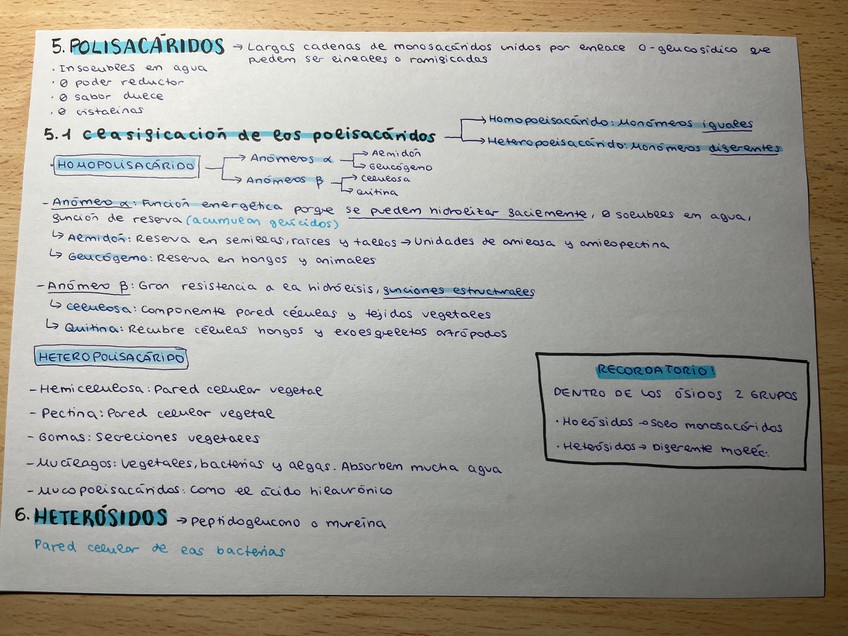 5. POLISACÁRIDOS → Largas cadenas de monosacáridos unidos por enlace O-glucosídico que
pueden ser lineales o ramificadas
· Insolubles en agua
· Ø poder reductor
· Ø sabor dulce
· Ø cistalinas
5.1 clasificación de los polisacáridos
→ Homopolisacárido: Monómeros iguales
→ Heteropolisacárido: Monómeros diferentes
- HOMOPOLISACÁRIDO
→ Anómeros α
→ Almidón
→ Glucógeno
→ Anómeros β
→ Celulosa
→ Quitina
- Anómero α: Función energética porque se pueden hidrolizar facilmente, Ø solubles en agua,
función de reserva (acumulan glúcidos)
↳ Almidón: Reserva en semillas, raíces y tallos → Unidades de amilosa y amilopectina
↳ Glucógeno: Reserva en hongos y animales
- Anómero β: Gran resistencia a la hidrólisis, funciones estructurales
↳ Celulosa: Componente pared células y tejidos vegetales
↳ Quitina: Recubre células hongos y exoesqueletos artrópodos
HETEROPOLISACÁRIDO
- Hemicelulosa: Pared celular vegetal
- Pectina: Pared celular vegetal
- Gomas: Secreciones vegetales
- Mucílagos: Vegetales, bacterias y algas. Absorben mucha agua
- Mucopolisacáridos: Como el ácido hilaurónico
RECORDATORIO!
DENTRO DE LOS ÓSIDOS 2 GRUPOS
· Holósidos → Solo monosacáridos
· Heterósidos → Diferente moléc.
6. HETERÓSIDOS → Peptidoglucano o mureína
Pared celular de las bacterias